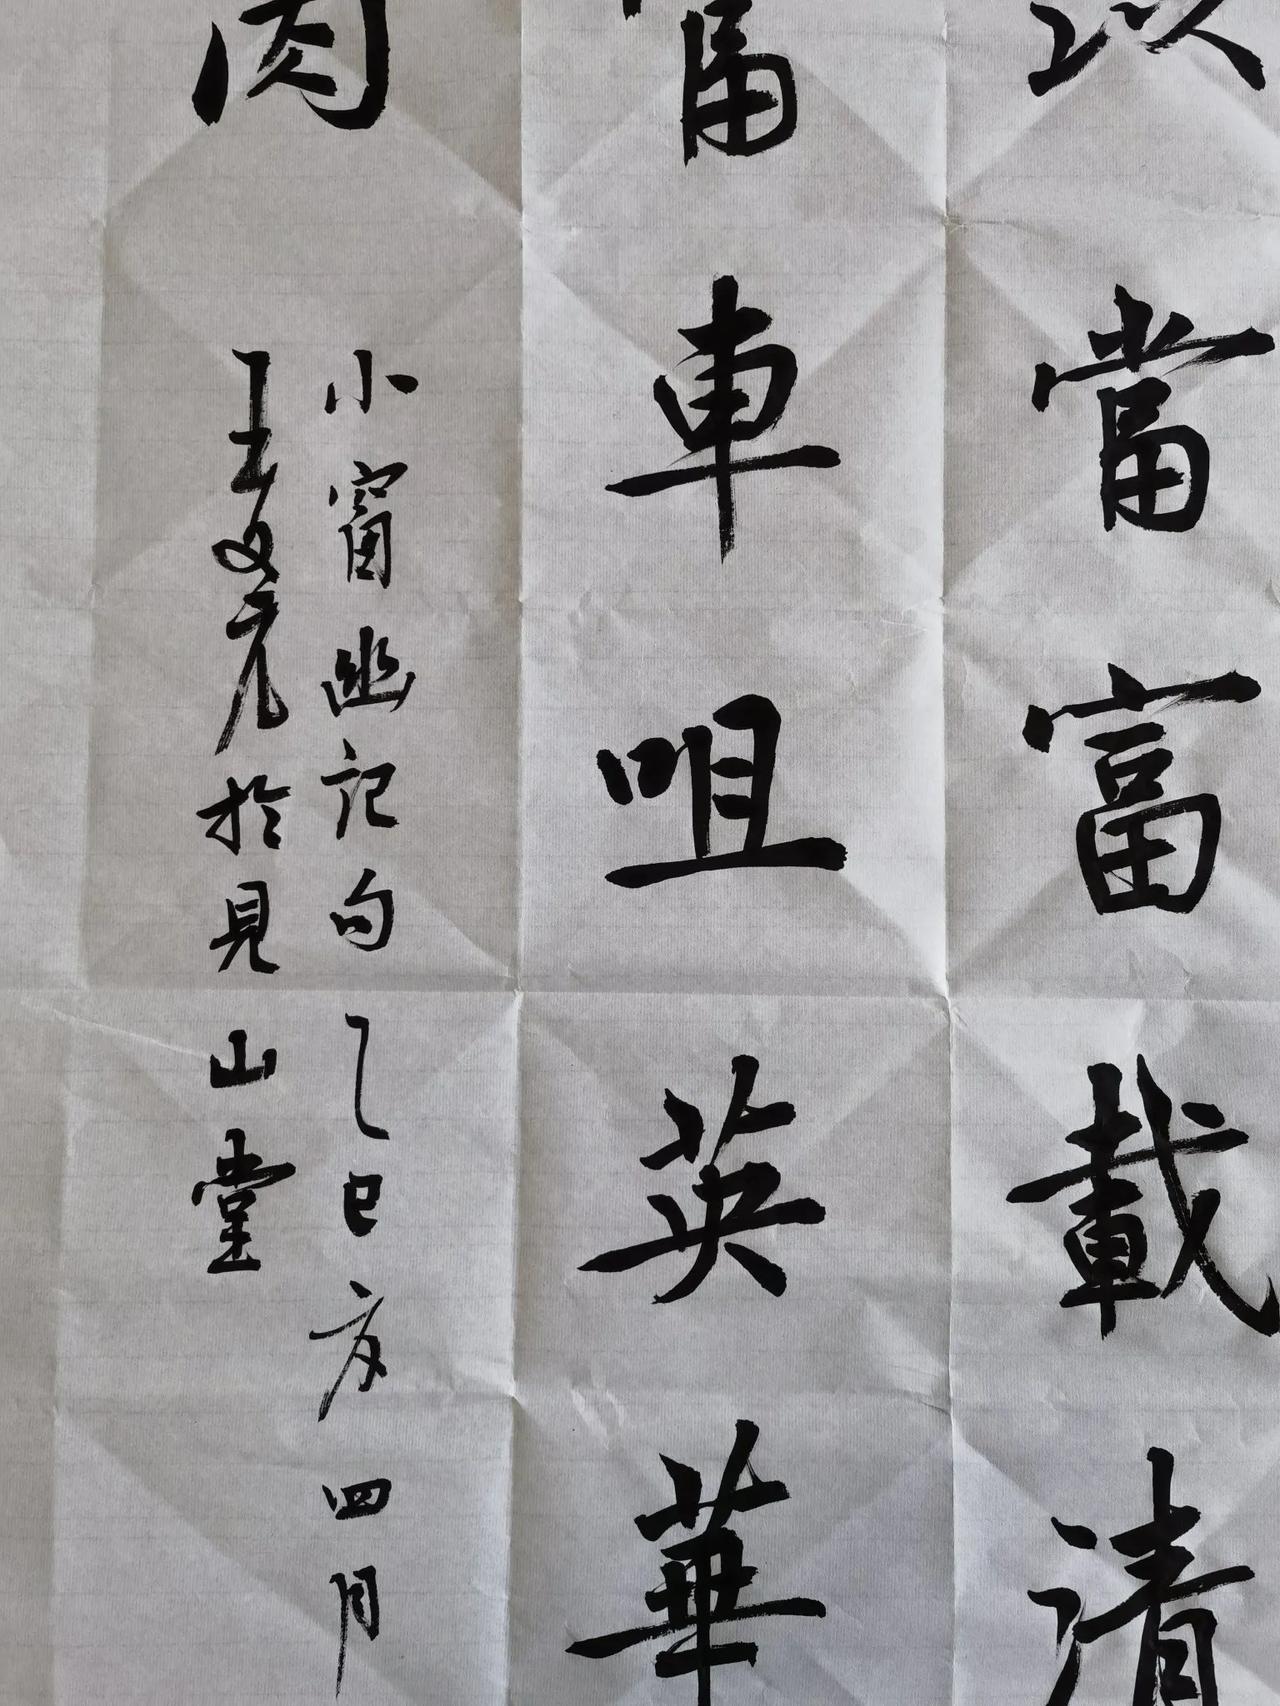 以當富載清
當車咀英華
肉
小窗幽記句乙巳夏四月
王文於見山堂